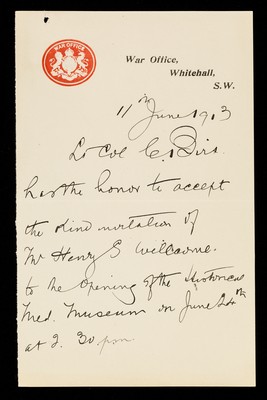 WAR OFFICE
War Office,
Whitehall,
S.W.
11th June 1913
Lt Col C. Birt
has the honor to accept
the kind invitation of
Mr Henry S Wellcome.
to the Opening of the Historical
Med. Museum on June 24th
at 2.30 pm